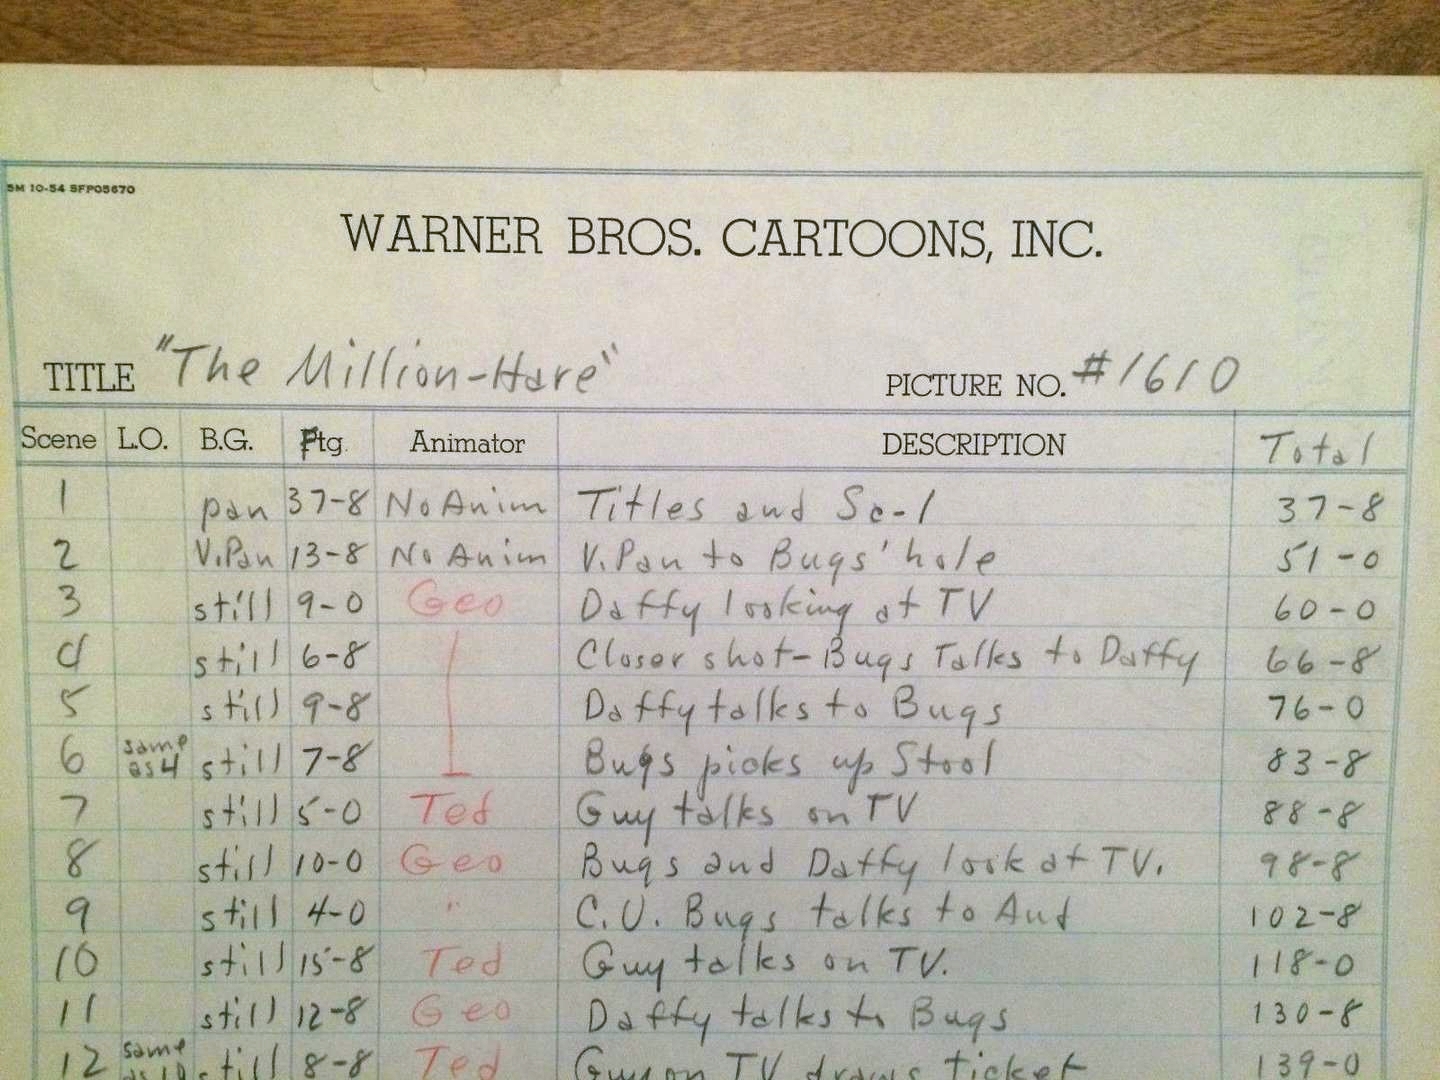 5M 10-54 SFP05670
WARNER BROS. CARTOONS, INC.
TITLE "The Million-Hare" PICTURE NO. #1610
Scene L.O. B.G. Ftg. Animator DESCRIPTION Total
1 pan 37-8 No Anim Titles and Sc-1 37-8
2 V.Pan 13-8 No Anim V.Pan to Bugs' hole 51-0
3 still 9-0 Geo Daffy looking at TV 60-0
4 still 6-8 Closer shot-Bugs Talks to Daffy 66-8
5 still 9-8 Daffy talks to Bugs 76-0
6 same as 4 still 7-8 Bugs picks up Stool 83-8
7 still 5-0 Ted Guy talks on TV 88-8
8 still 10-0 Geo Bugs and Daffy look at TV. 98-8
9 still 4-0 " C.U. Bugs talks to Aud 102-8
10 still 15-8 Ted Guy talks on TV. 118-0
11 still 12-8 Geo Daffy talks to Bugs 130-8
12 same as 10 still 8-8 Ted Guy on TV draws ticket 139-0